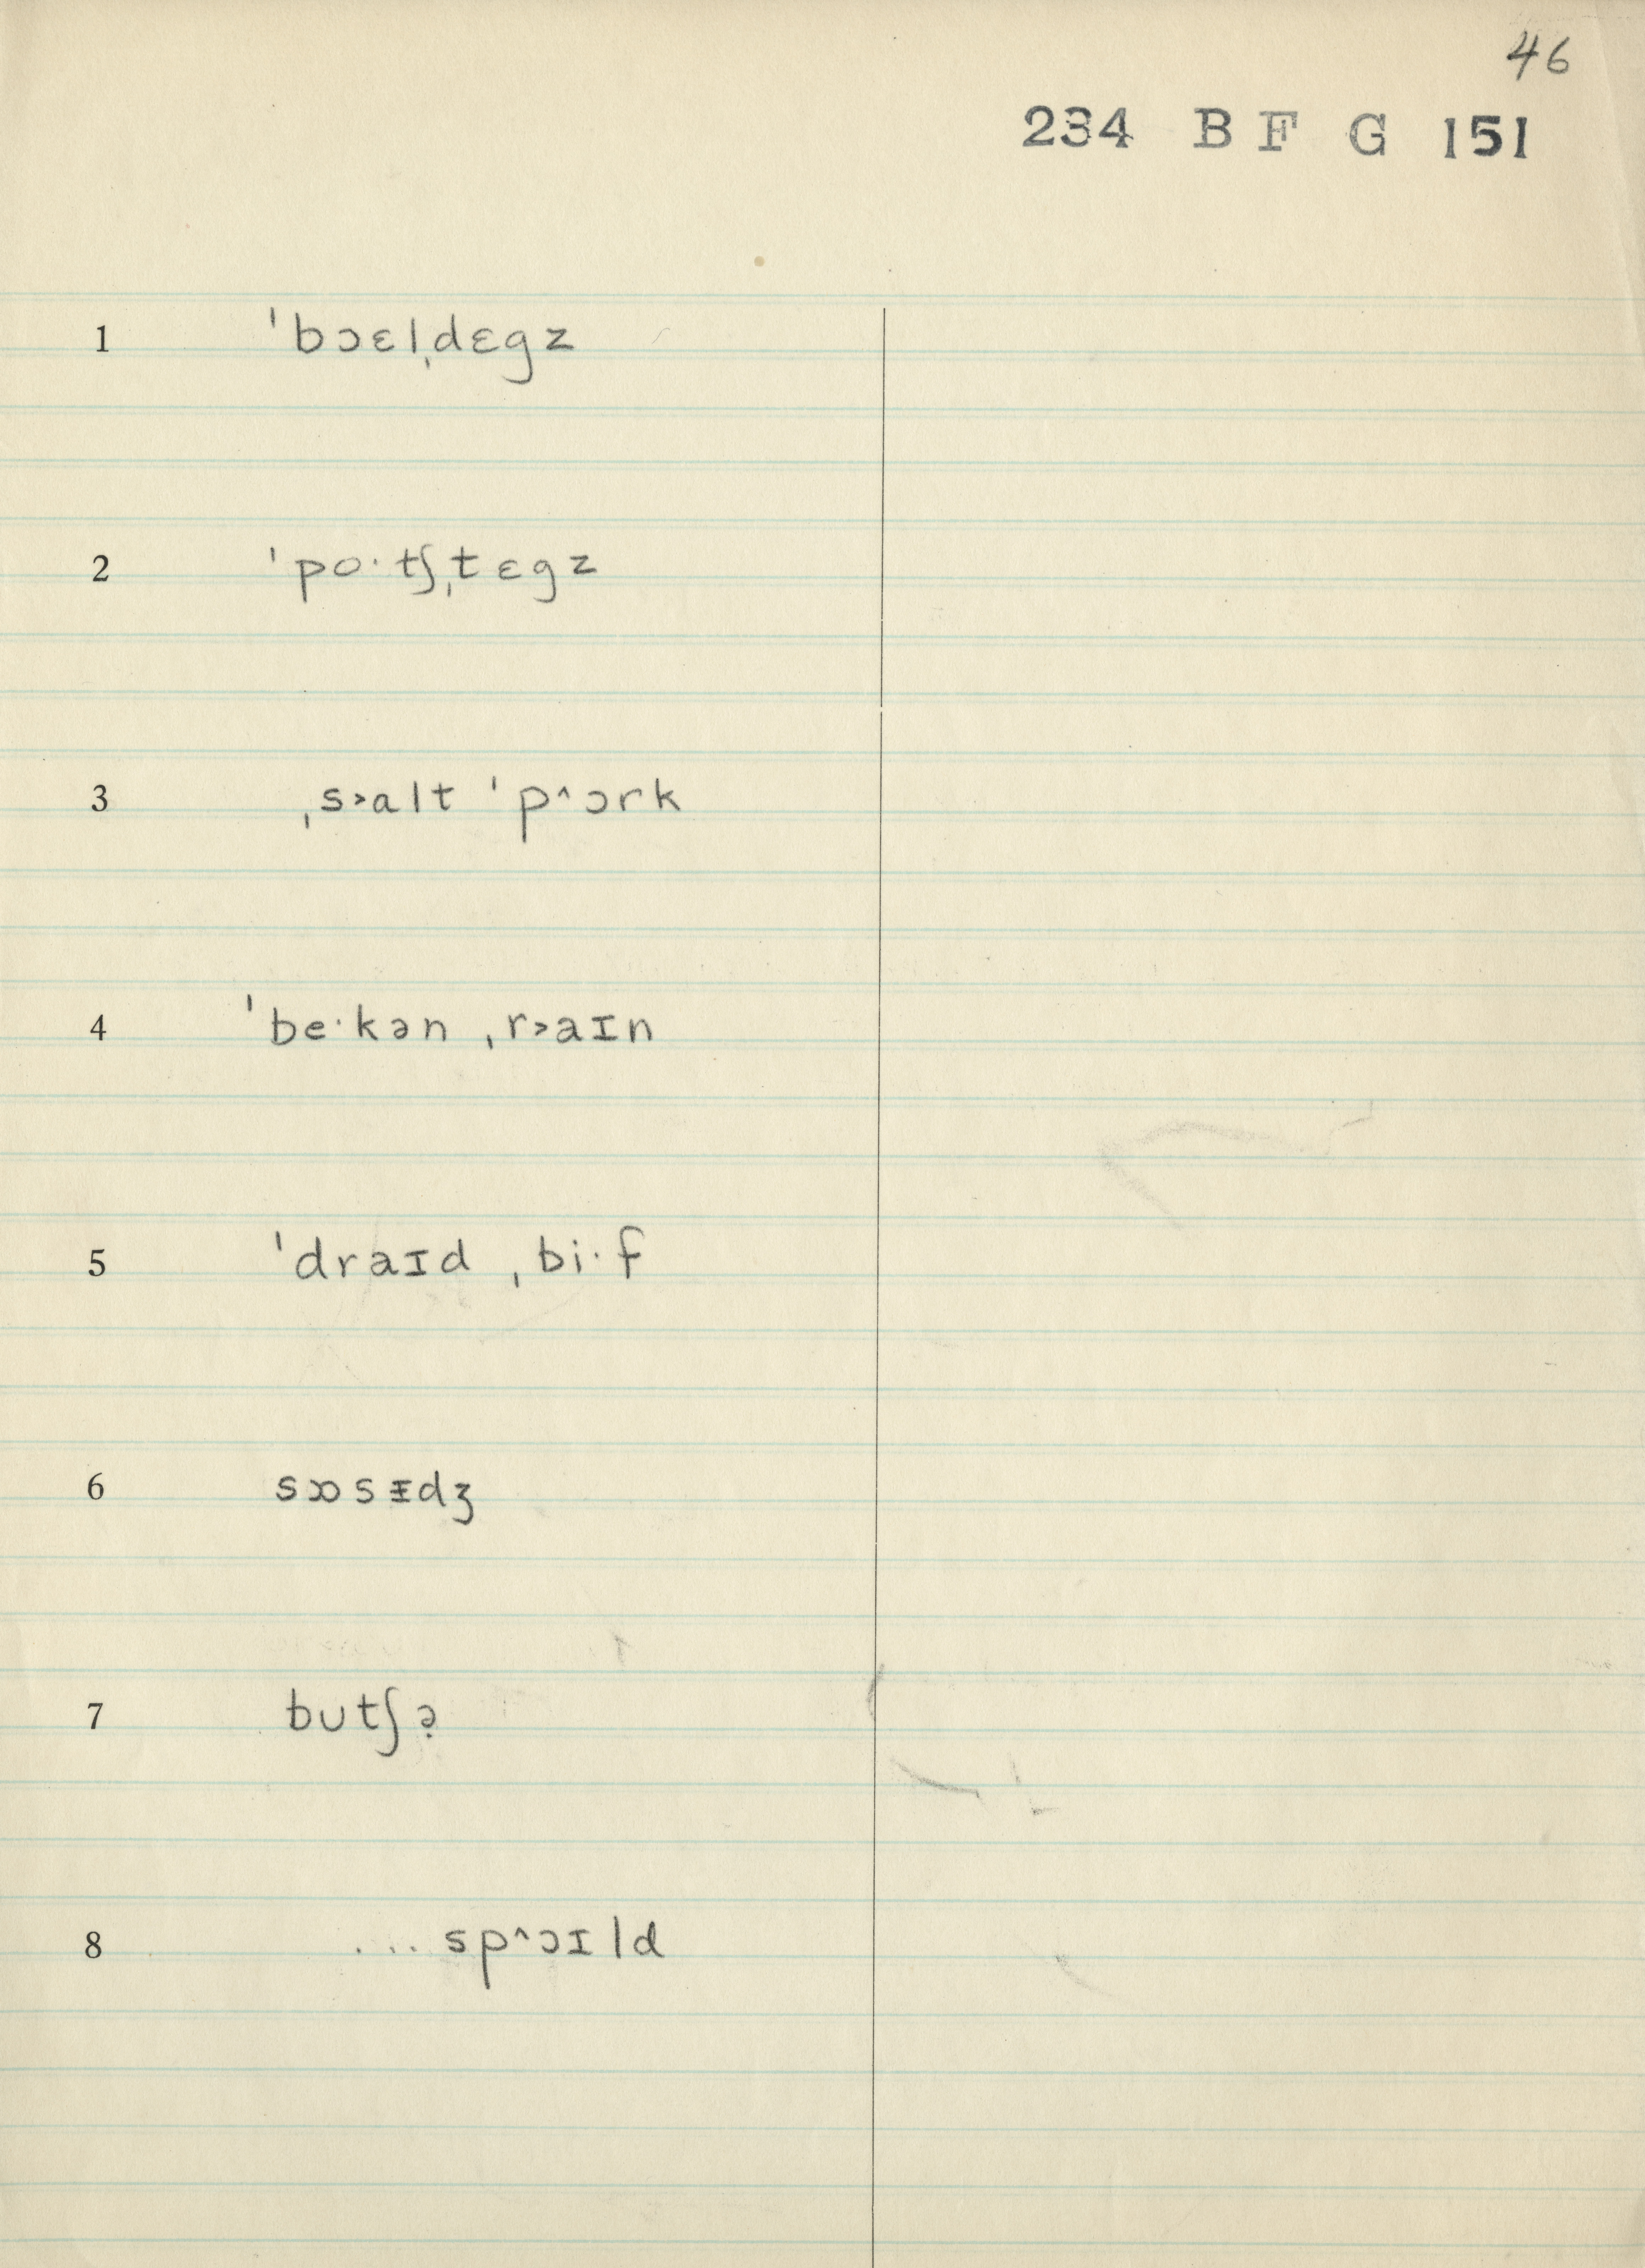 46
234 B F G 151
1 ˈbɔɛlˌdɛgz
2 ˈpo·tʃˌtɛgz
3 ˌs˃alt ˈp^ɔrk
4 ˈbe·kən ˌr˃aɪn
5 ˈdraɪd ˌbi·f
6 sɔosᵻdʒ
7 butʃə̣
8 ... sp^ɔɪld